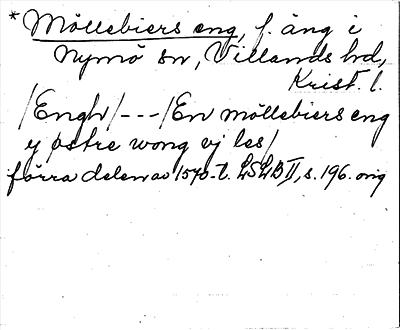 * Möllebiers eng, f. äng i
Nymö sn, Villands hd,
Krist. l.
/Engh/---/En möllebiers eng
y østre wong vj les/
förra delen av 1570-t. LSLB II, s. 196. orig